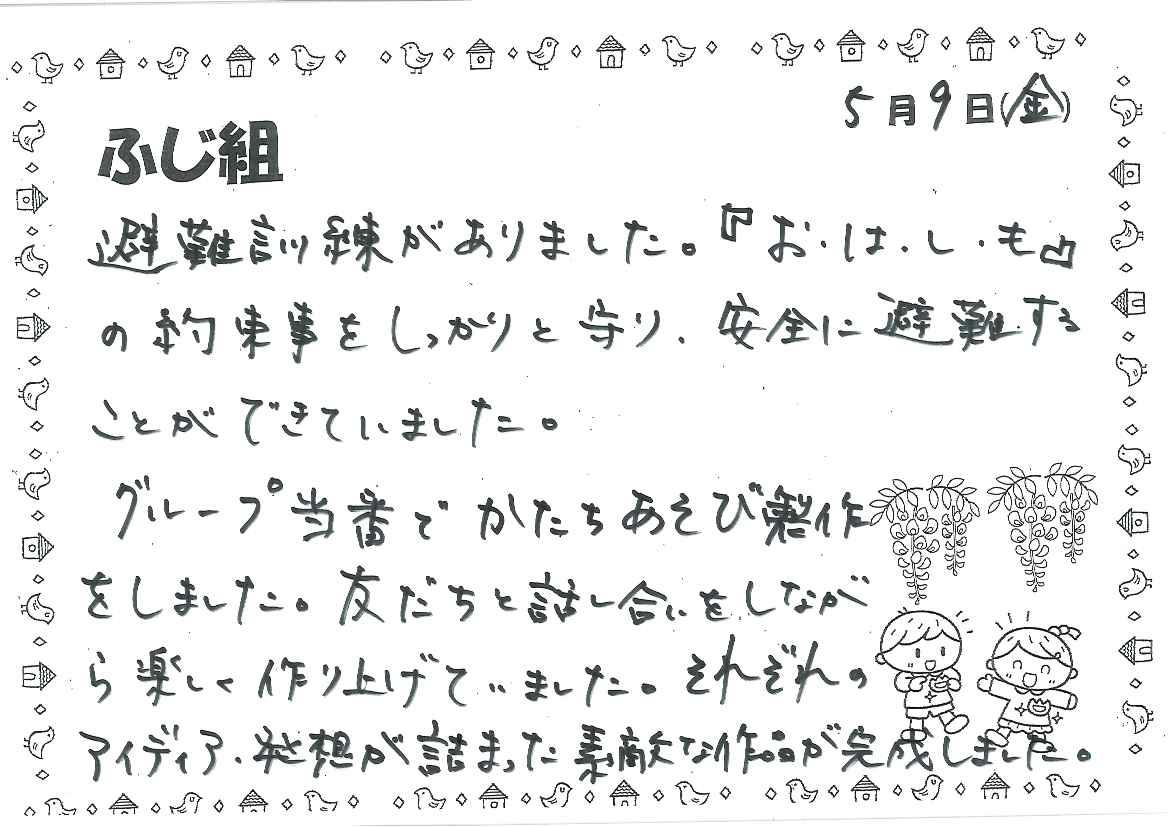 5月9日(金)
ふじ組
避難訓練がありました。『お・は・し・も』
の約束事をしっかりと守り、安全に避難する
ことができていました。
グループ当番でかたちあそび製作
をしました。友だちと話し合いをしなが
ら楽しく作り上げていました。それぞれの
アイディア、発想が詰まった素敵な作品が完成しました。